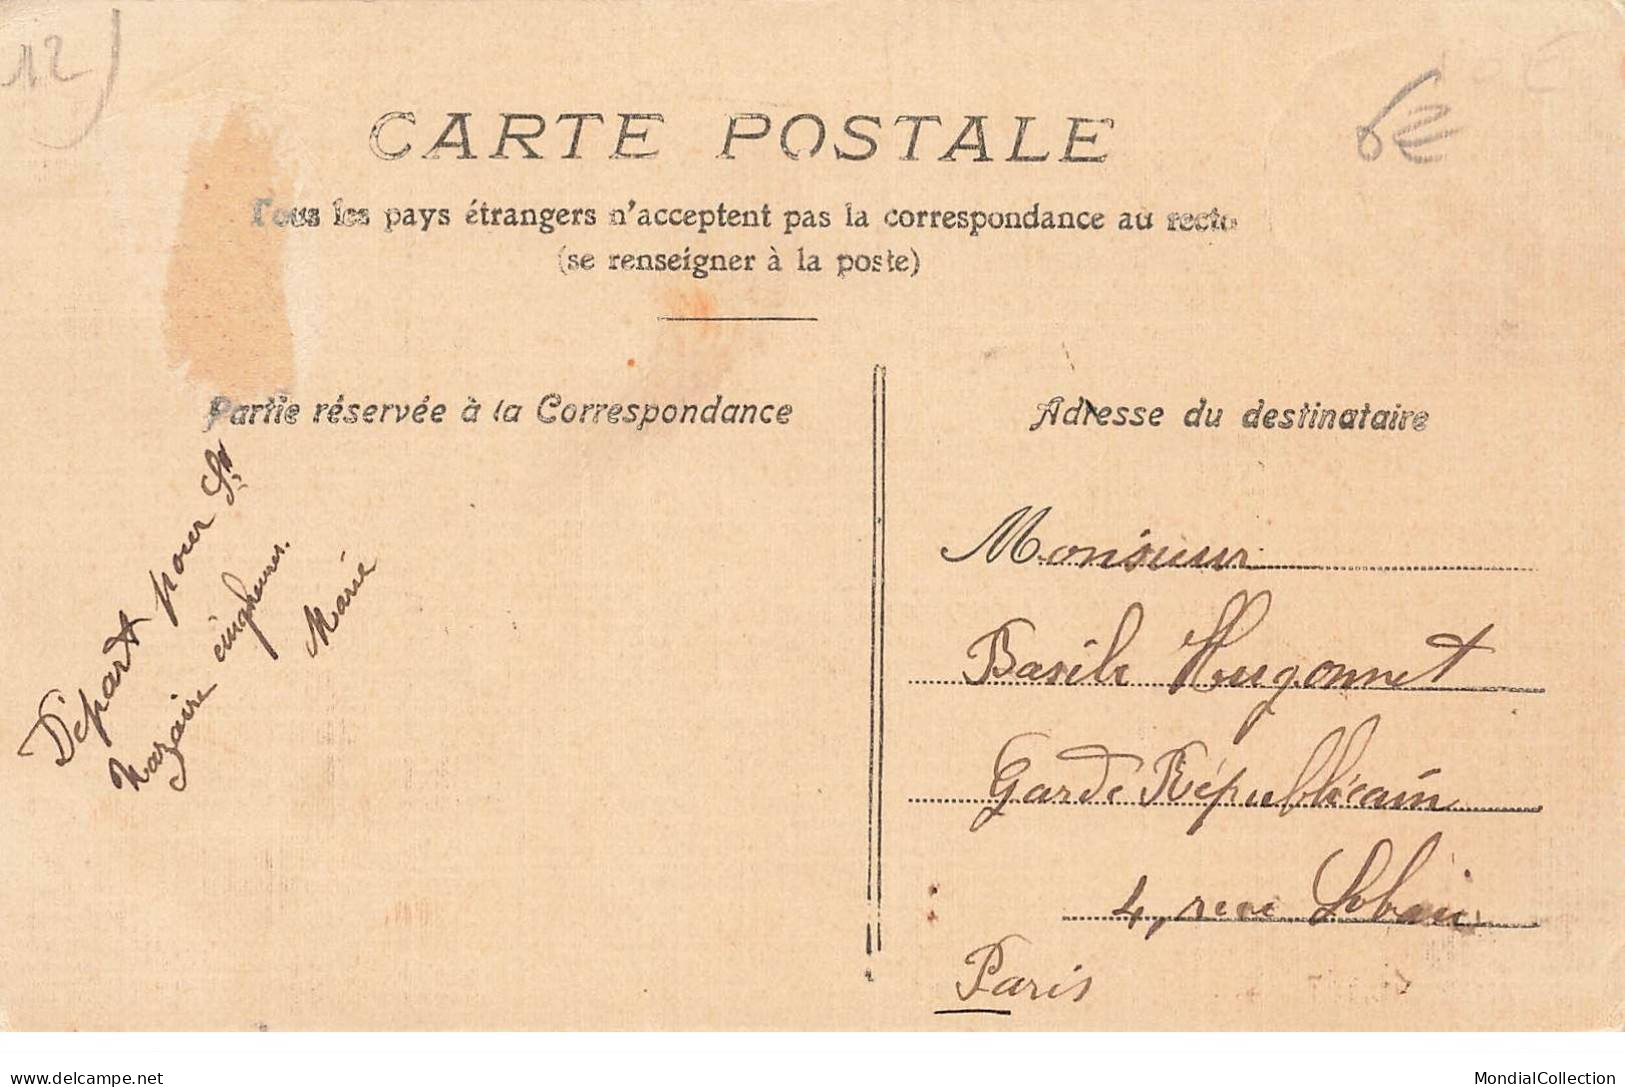 12
6€
CARTE POSTALE
Tous les pays étrangers n'acceptent pas la correspondance au recto
(se renseigner à la poste)
Partie réservée à la Correspondance
Départ pour St
Nazaire cinq heures.
Marie
Adresse du destinataire
Monsieur
Basile Hugonnet
Garde Républicain
4, rue Lobau
Paris
delcampe.net
MondialCollection